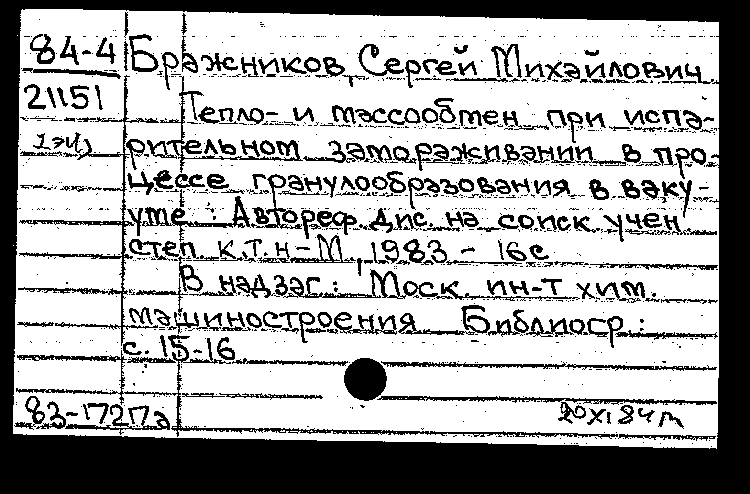 84-4 Бражников, Сергей Михайлович
21151 Тепло- и массообмен при испа-
1эк) рительном замораживании в про-
цессе гранулообразования в ваку-
уме : Автореф. дис. на соиск учен
степ к.т.н - М., 1983 - 16с
В надзаг: Моск. ин-т хим.
машиностроения Библиогр.:
с. 15-16
83-17217а 20 XI 84 м